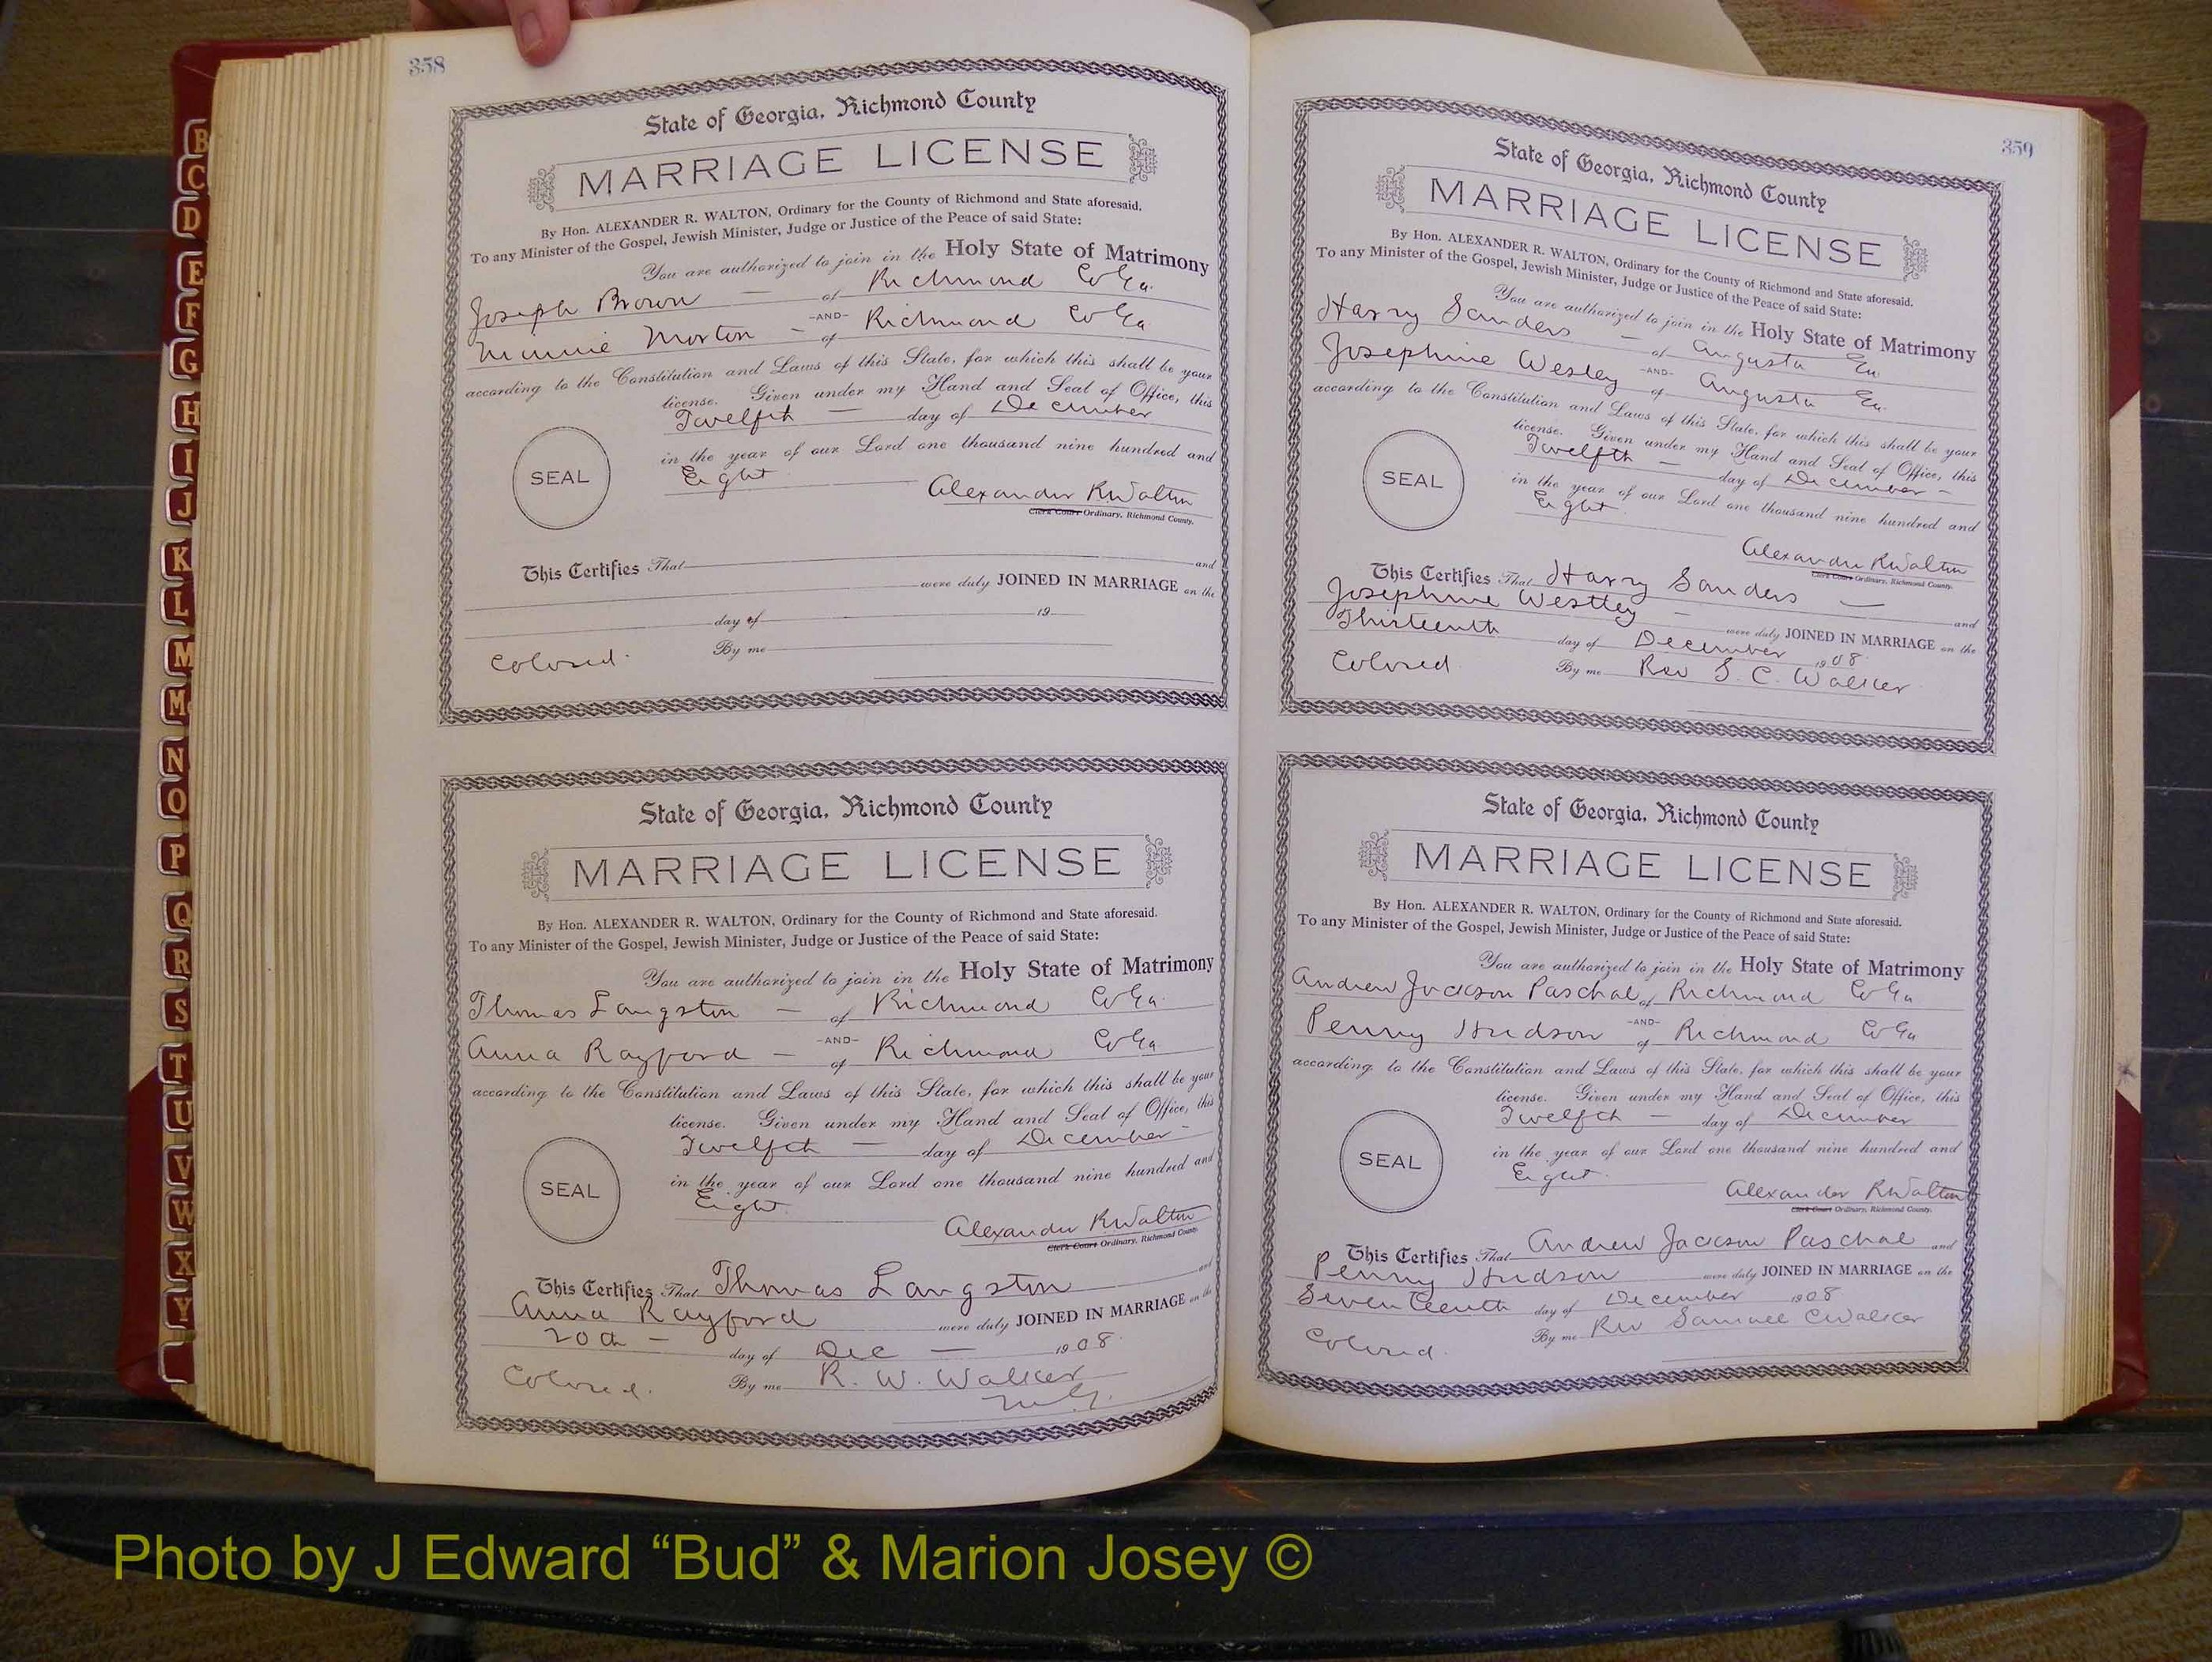 358
State of Georgia, Richmond County
MARRIAGE LICENSE
By Hon. ALEXANDER R. WALTON, Ordinary for the County of Richmond and State aforesaid.
To any Minister of the Gospel, Jewish Minister, Judge or Justice of the Peace of said State:
You are authorized to join in the Holy State of Matrimony
Joseph Brown — of Richmond Co Ga.
-AND-
Minnie Morton - of Richmond Co Ga
according to the Constitution and Laws of this State, for which this shall be your
license. Given under my Hand and Seal of Office, this
Twelfth — day of December
in the year of our Lord one thousand nine hundred and
Eight
SEAL
Alexander R Walton
Clerk Court Ordinary, Richmond County.
This Certifies That and
were duly JOINED IN MARRIAGE on the
day of 19
Colored. By me
State of Georgia, Richmond County
MARRIAGE LICENSE
By Hon. ALEXANDER R. WALTON, Ordinary for the County of Richmond and State aforesaid.
To any Minister of the Gospel, Jewish Minister, Judge or Justice of the Peace of said State:
You are authorized to join in the Holy State of Matrimony
Thomas Langston — of Richmond Co Ga.
-AND-
Anna Rayford — of Richmond Co Ga
according to the Constitution and Laws of this State, for which this shall be your
license. Given under my Hand and Seal of Office, this
Twelfth — day of December
in the year of our Lord one thousand nine hundred and
Eight.
SEAL
Alexander R Walton
Clerk Court Ordinary, Richmond County.
This Certifies That Thomas Langston and
Anna Rayford were duly JOINED IN MARRIAGE on the
20th — day of Dec — 1908.
Colored. By me R. W. Walker
M.G.
359
State of Georgia, Richmond County
MARRIAGE LICENSE
By Hon. ALEXANDER R. WALTON, Ordinary for the County of Richmond and State aforesaid.
To any Minister of the Gospel, Jewish Minister, Judge or Justice of the Peace of said State:
You are authorized to join in the Holy State of Matrimony
Harry Sanders — of Augusta Ga.
-AND-
Josephine Wesley of Augusta Ga.
according to the Constitution and Laws of this State, for which this shall be your
license. Given under my Hand and Seal of Office, this
Twelfth — day of December -
in the year of our Lord one thousand nine hundred and
Eight
SEAL
Alexander R Walton
Clerk Court Ordinary, Richmond County.
This Certifies That Harry Sanders — and
Josephine Westley — were duly JOINED IN MARRIAGE on the
Thirteenth day of December 1908
Colored By me Rev S. C. Walker
State of Georgia, Richmond County
MARRIAGE LICENSE
By Hon. ALEXANDER R. WALTON, Ordinary for the County of Richmond and State aforesaid.
To any Minister of the Gospel, Jewish Minister, Judge or Justice of the Peace of said State:
You are authorized to join in the Holy State of Matrimony
Andrew Jackson Paschal of Richmond Co Ga
-AND-
Penny Hudson of Richmond Co Ga
according to the Constitution and Laws of this State, for which this shall be your
license. Given under my Hand and Seal of Office, this
Twelfth — day of December
in the year of our Lord one thousand nine hundred and
Eight.
SEAL
Alexander R Walton
Clerk Court Ordinary, Richmond County.
This Certifies That Andrew Jackson Paschal and
Penny Hudson were duly JOINED IN MARRIAGE on the
Seventeenth day of December 1908
Colored. By me Rev Samuel C Walker
B
C
D
E
F
G
H
I
J
K
L
M
Mc
N
O
P
Q
R
S
T
U
V
W
X
Y
Photo by J Edward “Bud” & Marion Josey ©